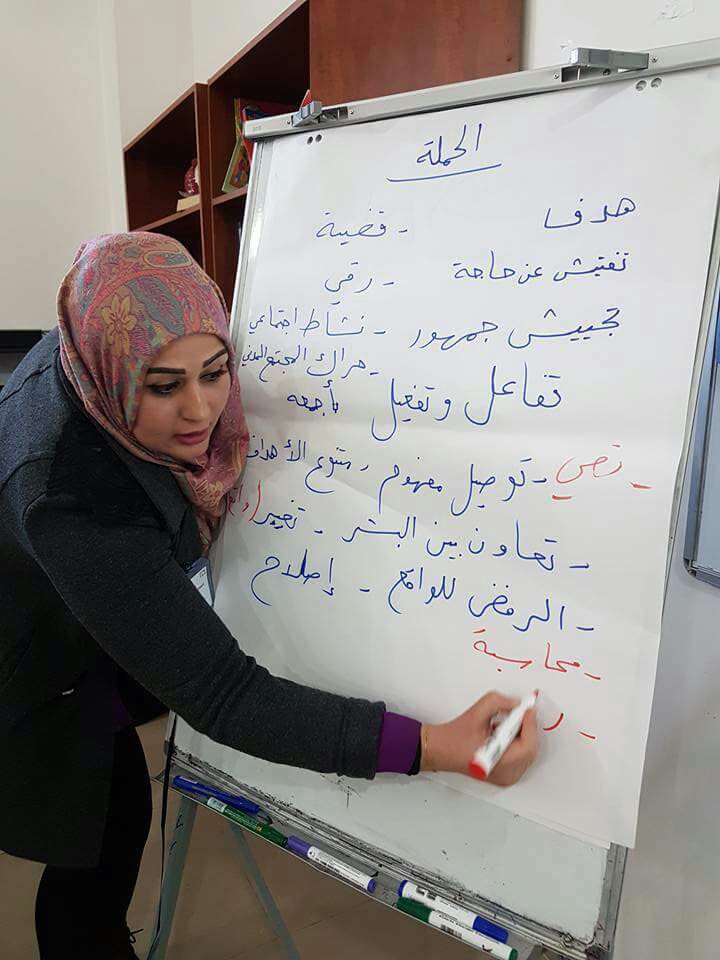 الحملة
هدف - قضية
تفتيش عن حاجة - رقي
تجييش جمهور - نشاط اجتماعي
- حراك المجتمع المدني
تفاعل وتفعيل بأجمعه
- توصيل مفهوم - متنوع الأهداف
- تعاون بين البشر - تغيير
- الرفض للواقع - إصلاح
- محاسبة